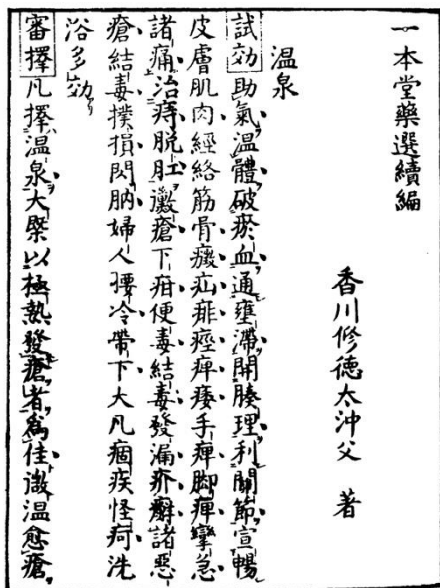 一本堂藥選續編
香川修德太沖父 著
溫泉
試効 助氣溫體破瘀血通壅滯開腠理利關節宣暢
皮膚肌肉經絡筋骨癥疝痱痙痺痿手痺脚痺攣急
諸痛治痔脫肛黴瘡下疳便毒結毒發漏疥癬諸惡
瘡結毒撲損閃肭婦人腰冷帶下大凡痼疾怪痾洗
浴多効
審擇 凡擇溫泉大槩以極熱發瘡者爲佳微溫愈瘡